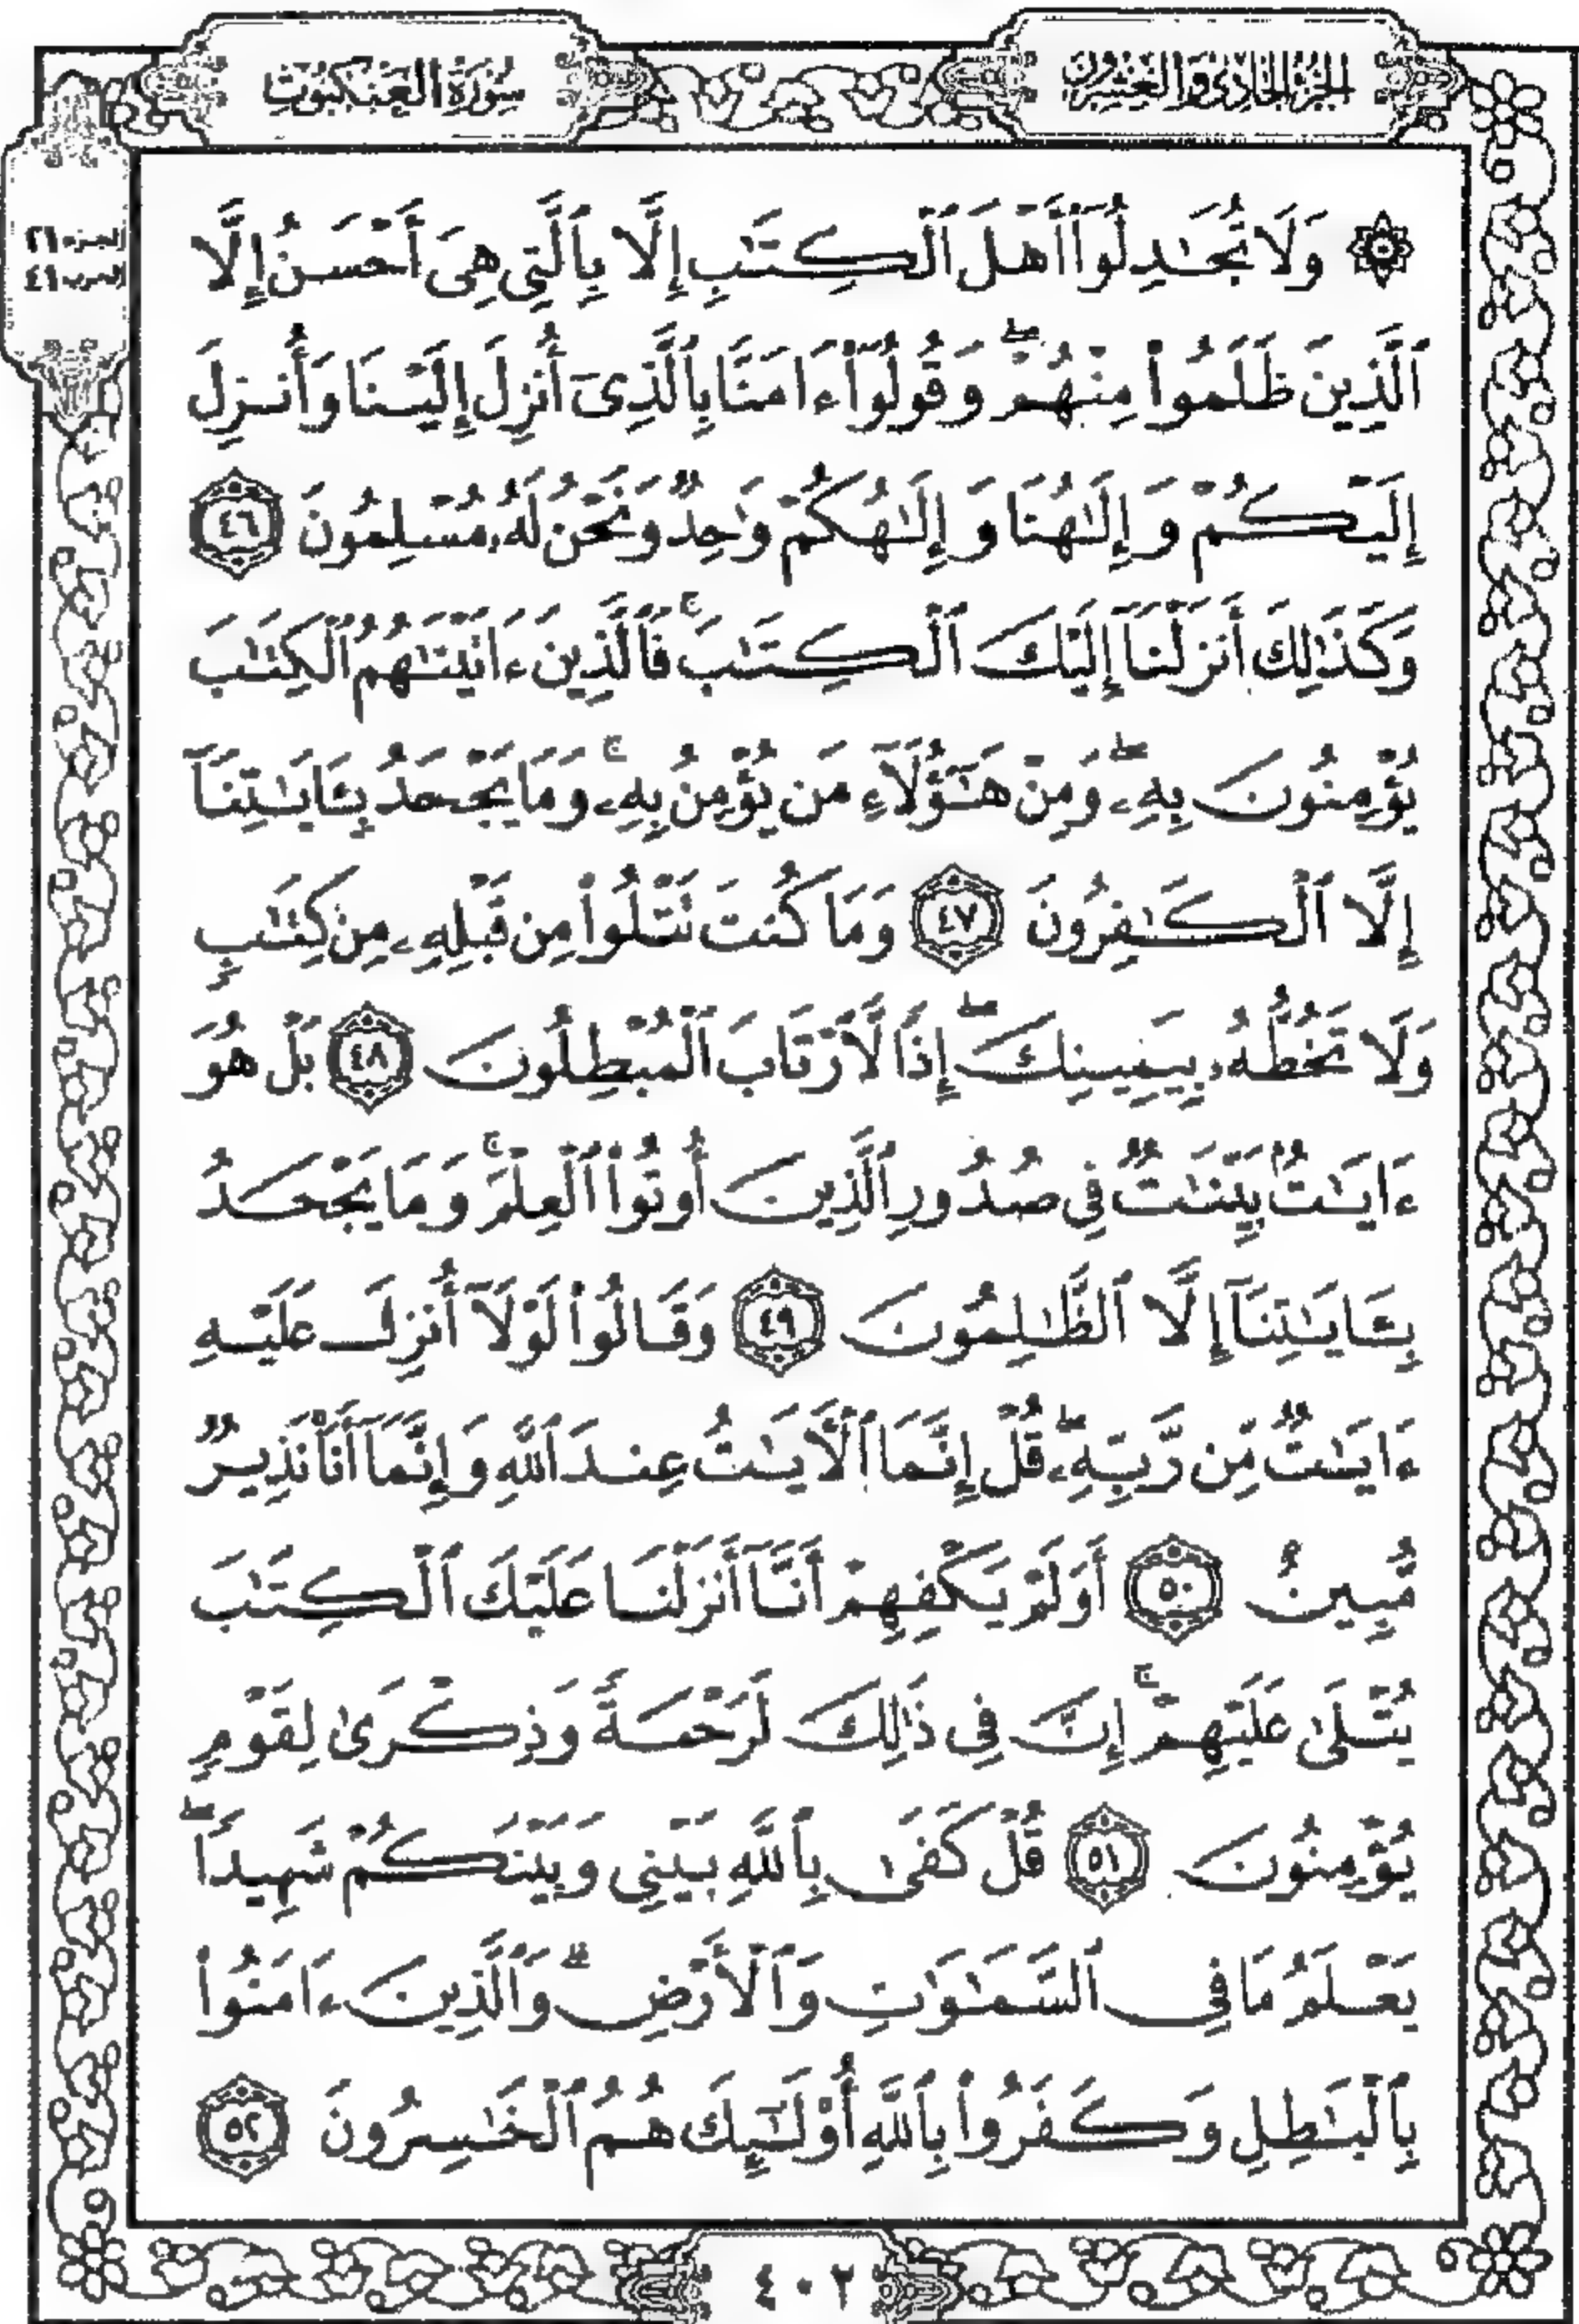 الجزء الحادي والعشرون
سورة العنكبوت
الجزء ٢١
الحزب ٤١
۞ وَلَا تُجَٰدِلُوٓا۟ أَهْلَ ٱلْكِتَٰبِ إِلَّا بِٱلَّتِى هِىَ أَحْسَنُ إِلَّا
ٱلَّذِينَ ظَلَمُوا۟ مِنْهُمْ ۖ وَقُولُوٓا۟ ءَامَنَّا بِٱلَّذِىٓ أُنزِلَ إِلَيْنَا وَأُنزِلَ
إِلَيْكُمْ وَإِلَٰهُنَا وَإِلَٰهُكُمْ وَٰحِدٌ وَنَحْنُ لَهُۥ مُسْلِمُونَ ٤٦
وَكَذَٰلِكَ أَنزَلْنَآ إِلَيْكَ ٱلْكِتَٰبَ ۚ فَٱلَّذِينَ ءَاتَيْنَٰهُمُ ٱلْكِتَٰبَ
يُؤْمِنُونَ بِهِۦ ۖ وَمِنْ هَٰٓؤُلَآءِ مَن يُؤْمِنُ بِهِۦ ۚ وَمَا يَجْحَدُ بِـَٔايَٰتِنَآ
إِلَّا ٱلْكَٰفِرُونَ ٤٧ وَمَا كُنتَ تَتْلُوا۟ مِن قَبْلِهِۦ مِن كِتَٰبٍ
وَلَا تَخُطُّهُۥ بِيَمِينِكَ ۖ إِذًا لَّٱرْتَابَ ٱلْمُبْطِلُونَ ٤٨ بَلْ هُوَ
ءَايَٰتٌۢ بَيِّنَٰتٌ فِى صُدُورِ ٱلَّذِينَ أُوتُوا۟ ٱلْعِلْمَ ۚ وَمَا يَجْحَدُ
بِـَٔايَٰتِنَآ إِلَّا ٱلظَّٰلِمُونَ ٤٩ وَقَالُوا۟ لَوْلَآ أُنزِلَ عَلَيْهِ
ءَايَٰتٌ مِّن رَّبِّهِۦ ۖ قُلْ إِنَّمَا ٱلْـَٔايَٰتُ عِندَ ٱللَّهِ وَإِنَّمَآ أَنَا۠ نَذِيرٌ
مُّبِينٌ ٥٠ أَوَلَمْ يَكْفِهِمْ أَنَّآ أَنزَلْنَا عَلَيْكَ ٱلْكِتَٰبَ
يُتْلَىٰ عَلَيْهِمْ ۚ إِنَّ فِى ذَٰلِكَ لَرَحْمَةً وَذِكْرَىٰ لِقَوْمٍ
يُؤْمِنُونَ ٥١ قُلْ كَفَىٰ بِٱللَّهِ بَيْنِى وَبَيْنَكُمْ شَهِيدًا ۖ
يَعْلَمُ مَا فِى ٱلسَّمَٰوَٰتِ وَٱلْأَرْضِ ۗ وَٱلَّذِينَ ءَامَنُوا۟
بِٱلْبَٰطِلِ وَكَفَرُوا۟ بِٱللَّهِ أُو۟لَٰٓئِكَ هُمُ ٱلْخَٰسِرُونَ ٥٢
٤٠٢